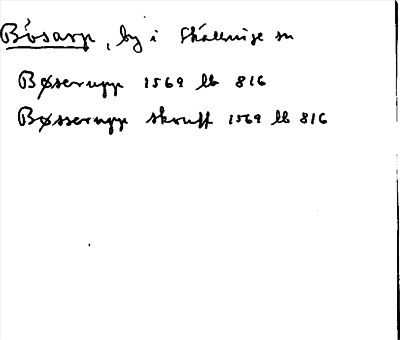 Bösarp, by i Skällinge sn
Bøserupp 1569 lb 816
Bøsserupp skouff 1569 lb 816